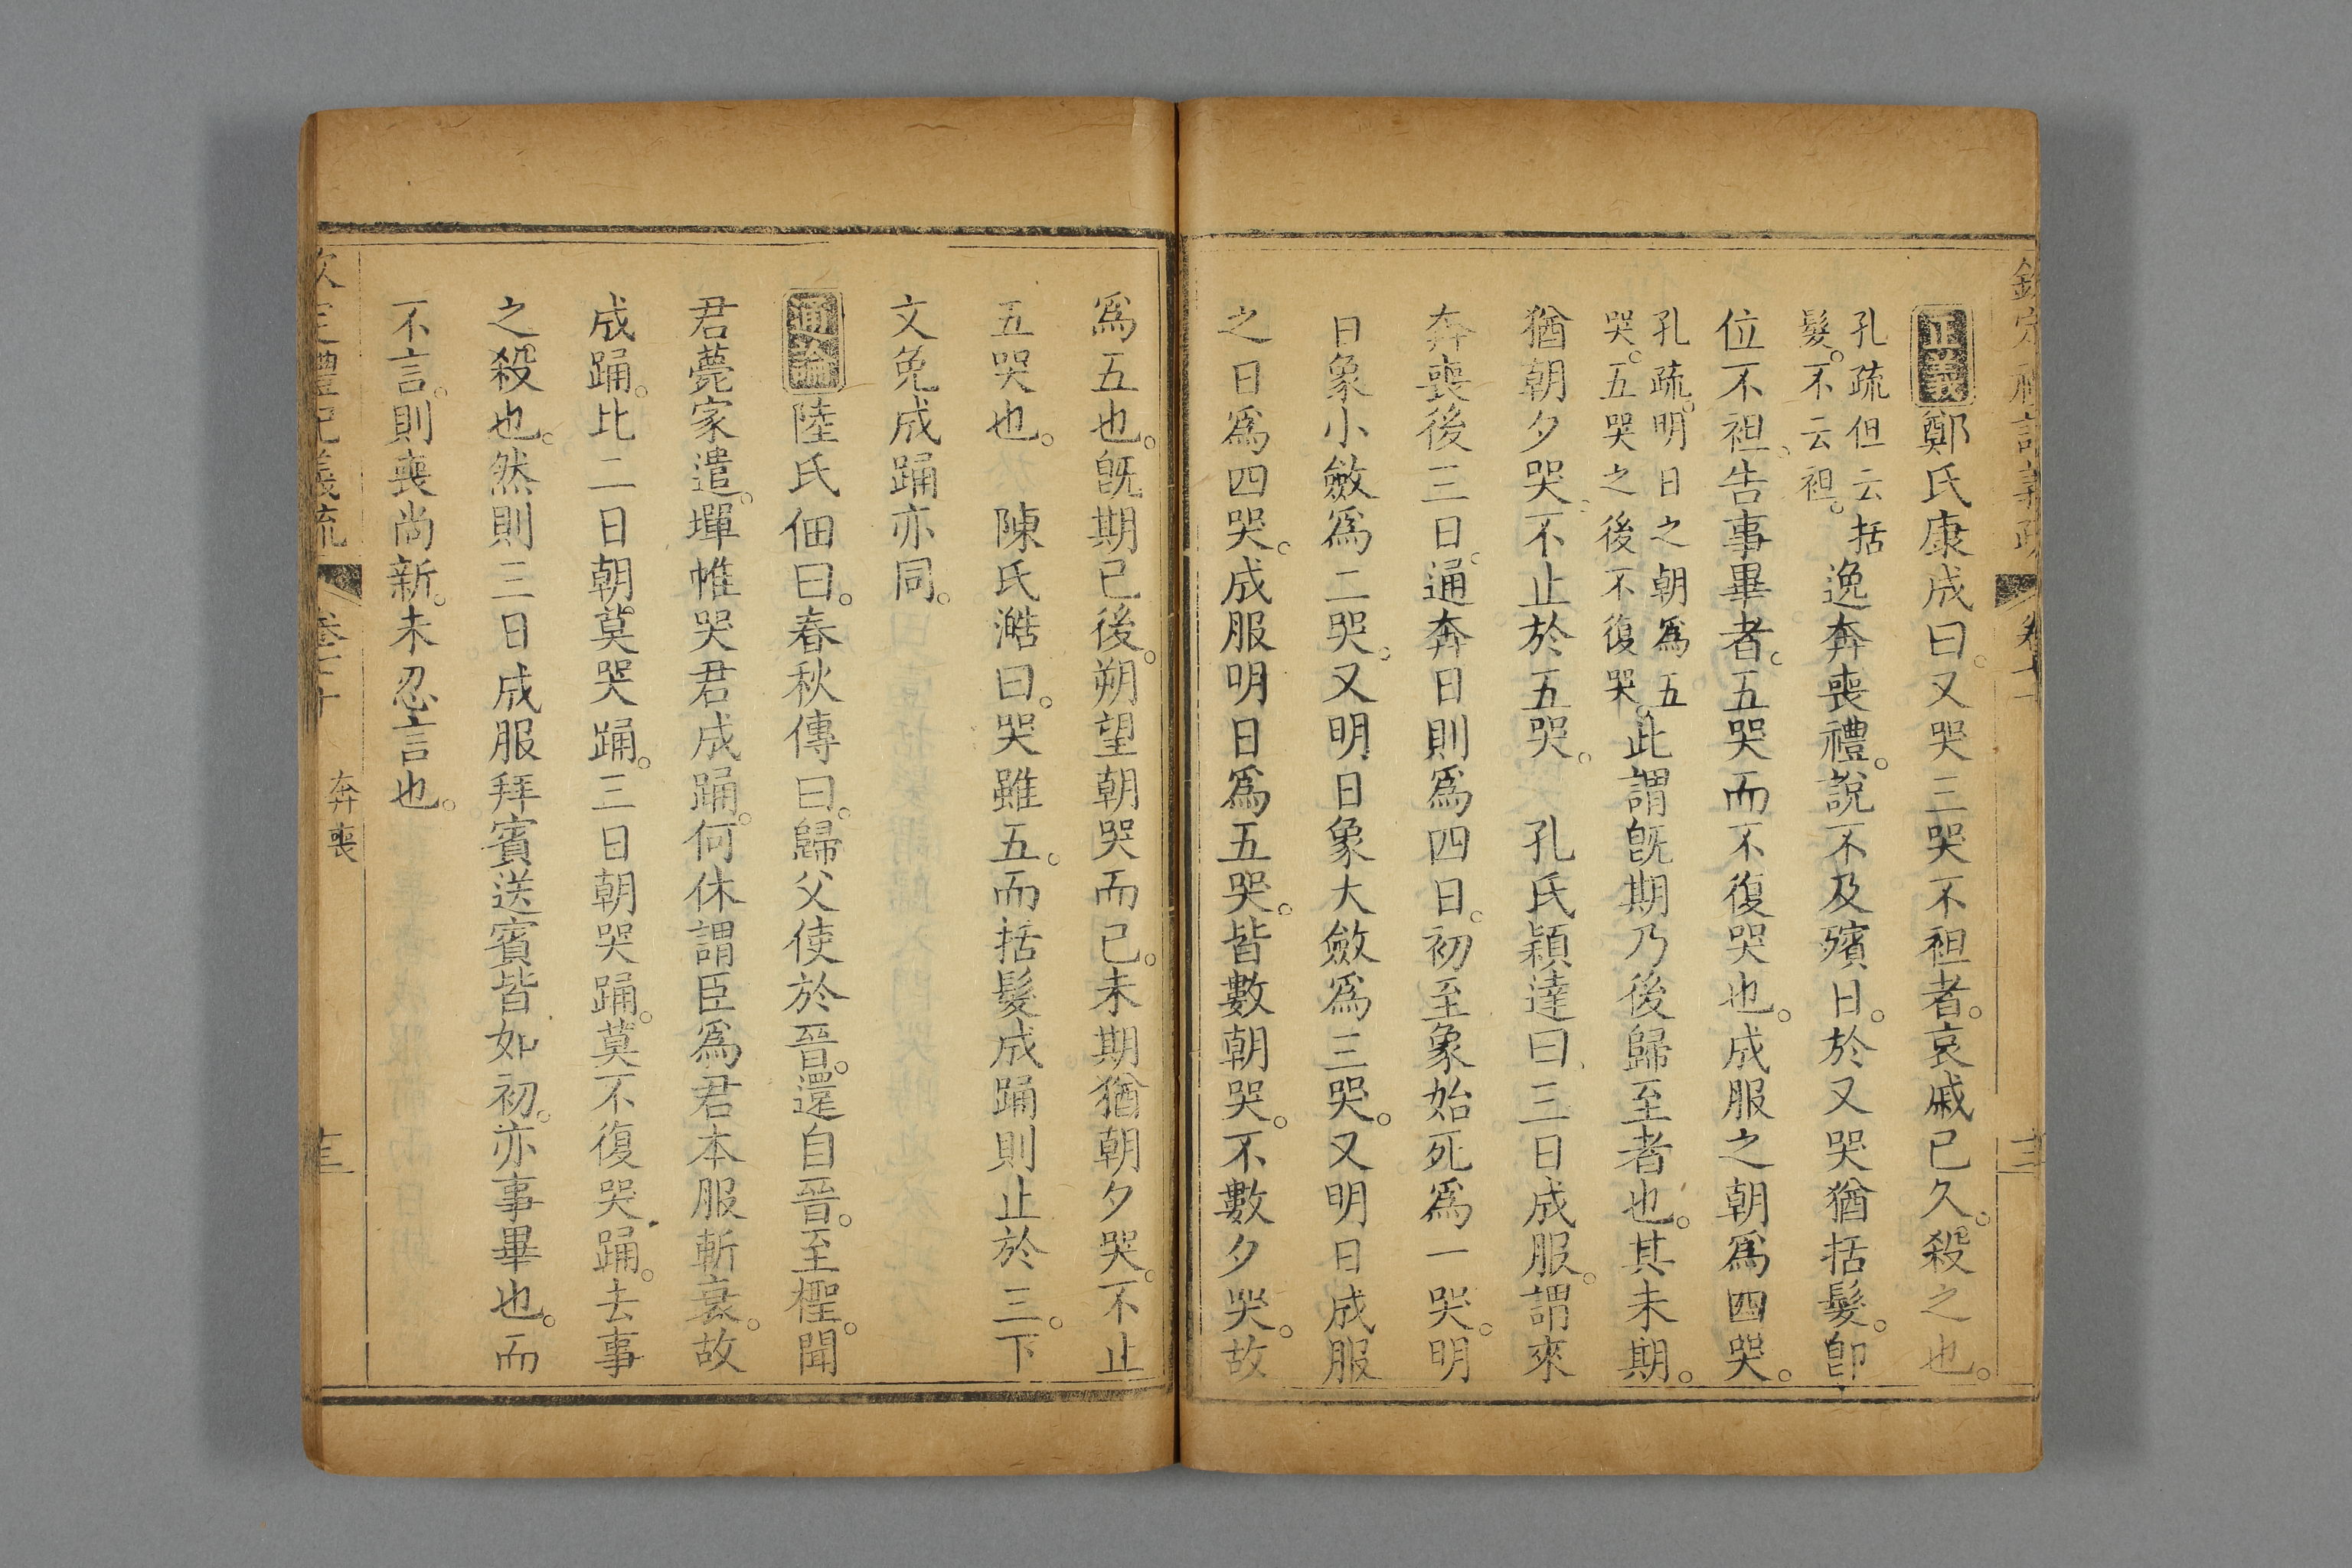 正義鄭氏康成曰。又哭三哭不袒者。哀戚已久。殺之也。
孔疏但云括髮。不云袒。逸奔喪禮。說不及殯日。於又哭猶括髮。卽
位不袒。告事畢者。五哭而不復哭也。成服之朝爲四哭。
孔疏。明日之朝爲五哭。五哭之後不復哭。此謂旣期乃後歸至者也。其未期。
猶朝夕哭。不止於五哭。 孔氏穎達曰。三日成服。謂來
奔喪後三日。通奔日則爲四日。初至象始死爲一哭。明
日象小斂爲二哭。又明日象大斂爲三哭。又明日成服
之日爲四哭。成服明日爲五哭。皆數朝哭。不數夕哭。故
爲五也。旣期已後。朔望朝哭而已。未期猶朝夕哭。不止
五哭也。 陳氏澔曰。哭雖五。而括髮成踊則止於三。下
文免成踊亦同。
通論陸氏佃曰。春秋傳曰。歸父使於晉。還自晉。至檉。聞
君薨家遣。墠帷哭君成踊。何休謂臣爲君本服斬衰。故
成踊。比二日朝莫哭踊。三日朝哭踊。莫不復哭踊。去事
之殺也。然則三日成服拜賓送賓皆如初。亦事畢也。而
不言。則喪尚新。未忍言也。
奔喪